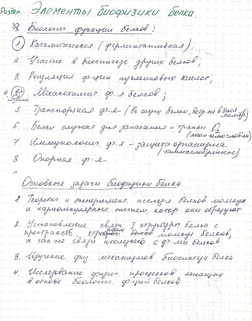 Раздел Элементы биофизики белка
Биологич. функции белков:
1 Каталитическая (ферментативная);
2. Участие в биосинтезе других белков;
3. Регуляция ф-ции нуклеиновых кислот;
Механохимич. ф-я белков;
5. Транспортная ф-я
6. Белки служат для запасания и транс. O2
7. Иммунологич. ф-я - защита организма
8. Опорная ф-я.
Основные задачи биофизики белка
1. Теоретич. и эксперимент. исслед. белков молекул
и надмолекулярных систем, котор. они образуют
2. Установление связи I структуры белка с
пространств. белков. молекул белков,
а также связи последнего с ф-ми белков
3. Изучение физ. механизмов биосинтеза белка
4. Исследование физич. процессов лежащих
в основе биологич. функций белков